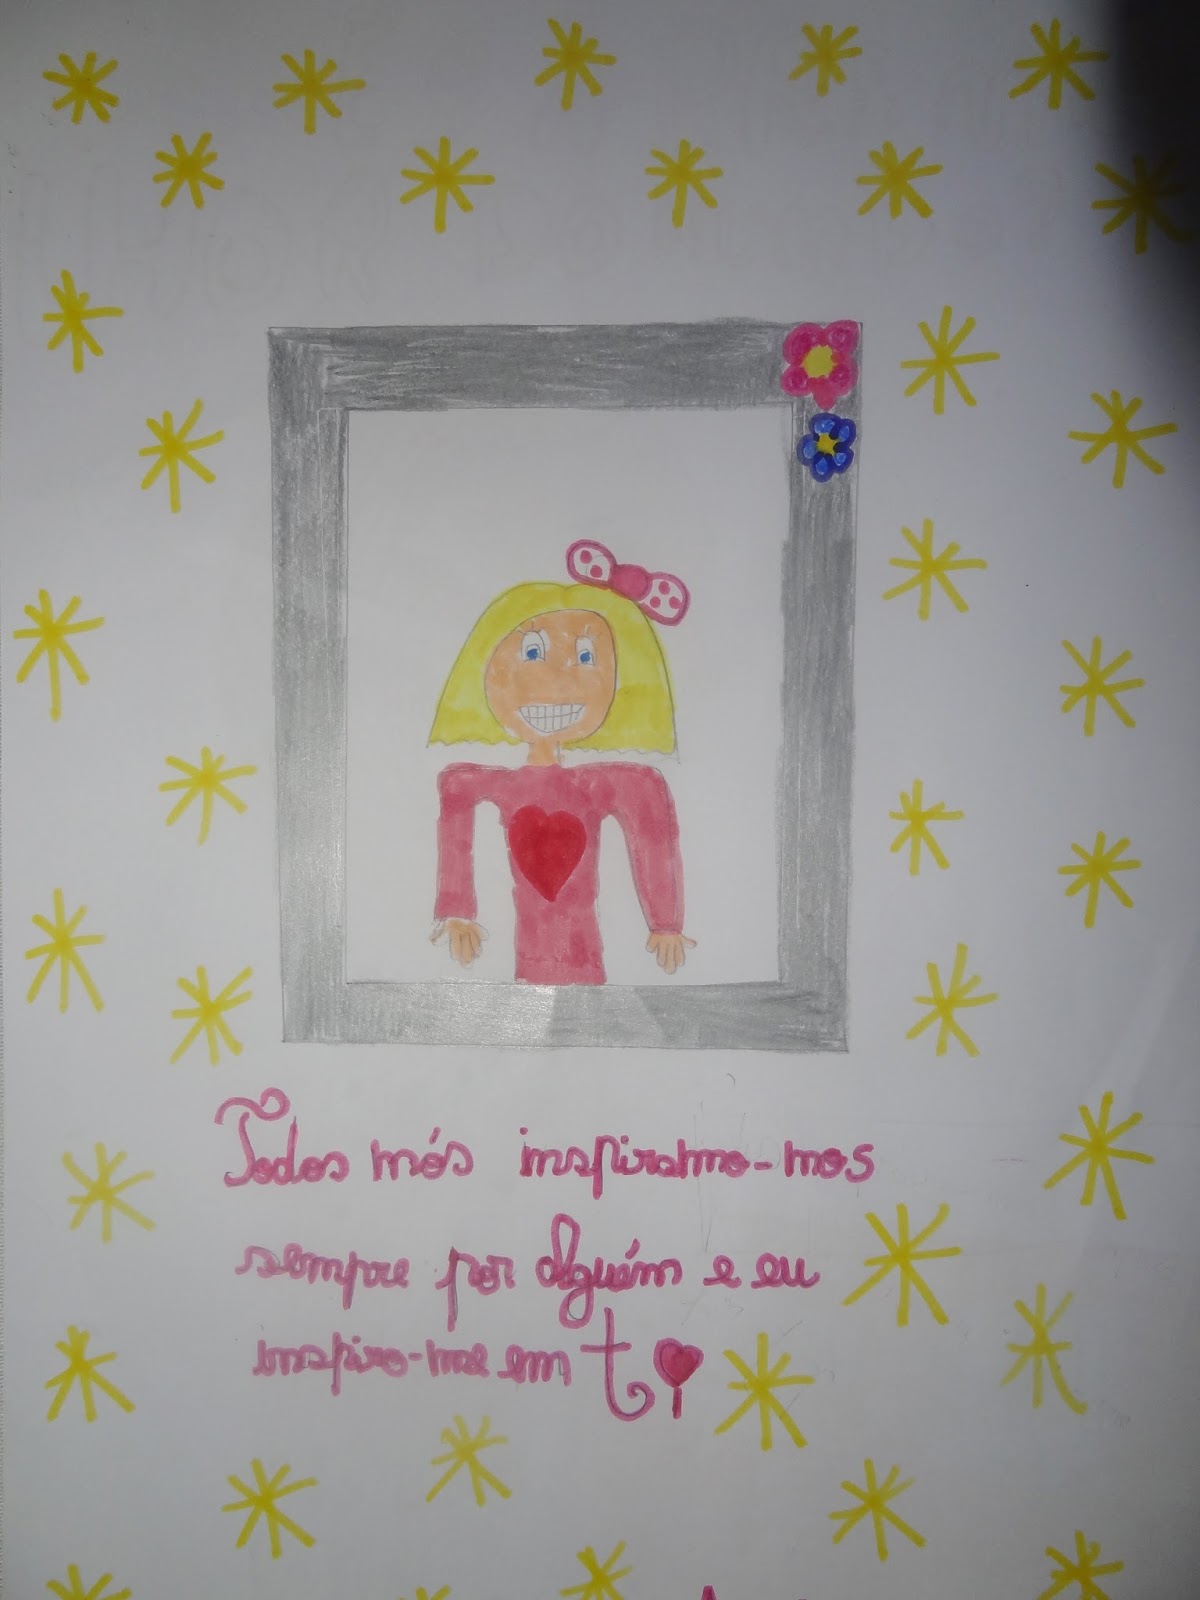 Todos nós inspiramo-nos
sempre por alguém e eu
inspiro-me em ti